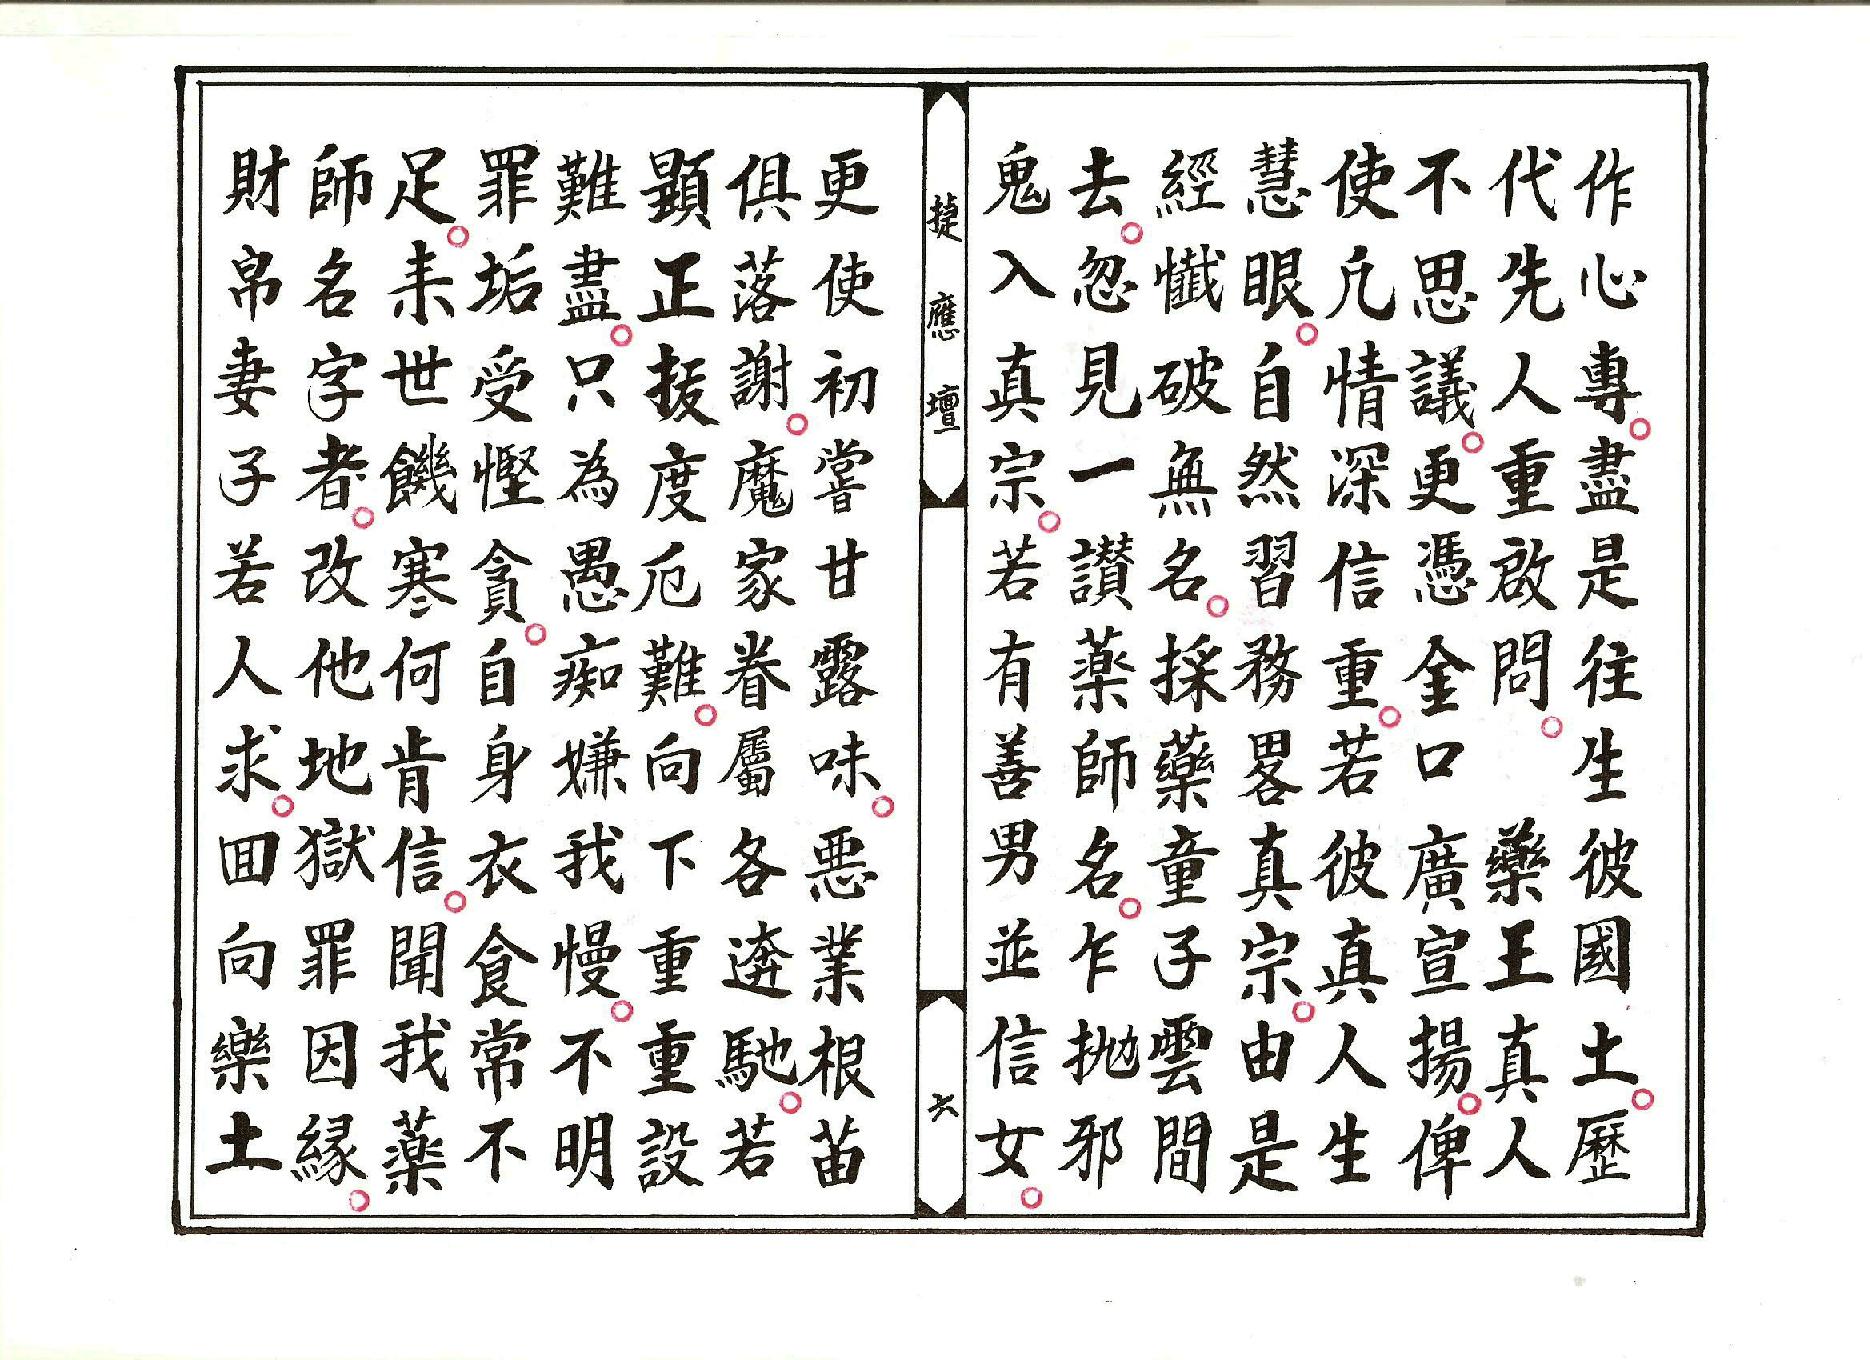 作心專。盡是往生彼國土。歷
代先人重啟問。藥王真人
不思議。更憑金口廣宣揚。俾
使凡情深信重。若彼真人生
慧眼。自然習務畧真宗。由是
經懺破無名。採藥童子雲間
去。忽見一讃薬師名。乍拋邪
鬼入真宗。若有善男並信女。
捷應壇
六
更使初嘗甘露味。惡業根苗
俱落謝。魔家眷屬各逩馳。若
顕正拔度厄難。向下重重設
難盡。只為愚痴嫌我慢。不明
罪垢受慳貪。自身衣食常不
足。耒世饑寒何肯信。聞我薬
師名字者。改他地獄罪因緣。
財帛妻子若人求。囬向樂土